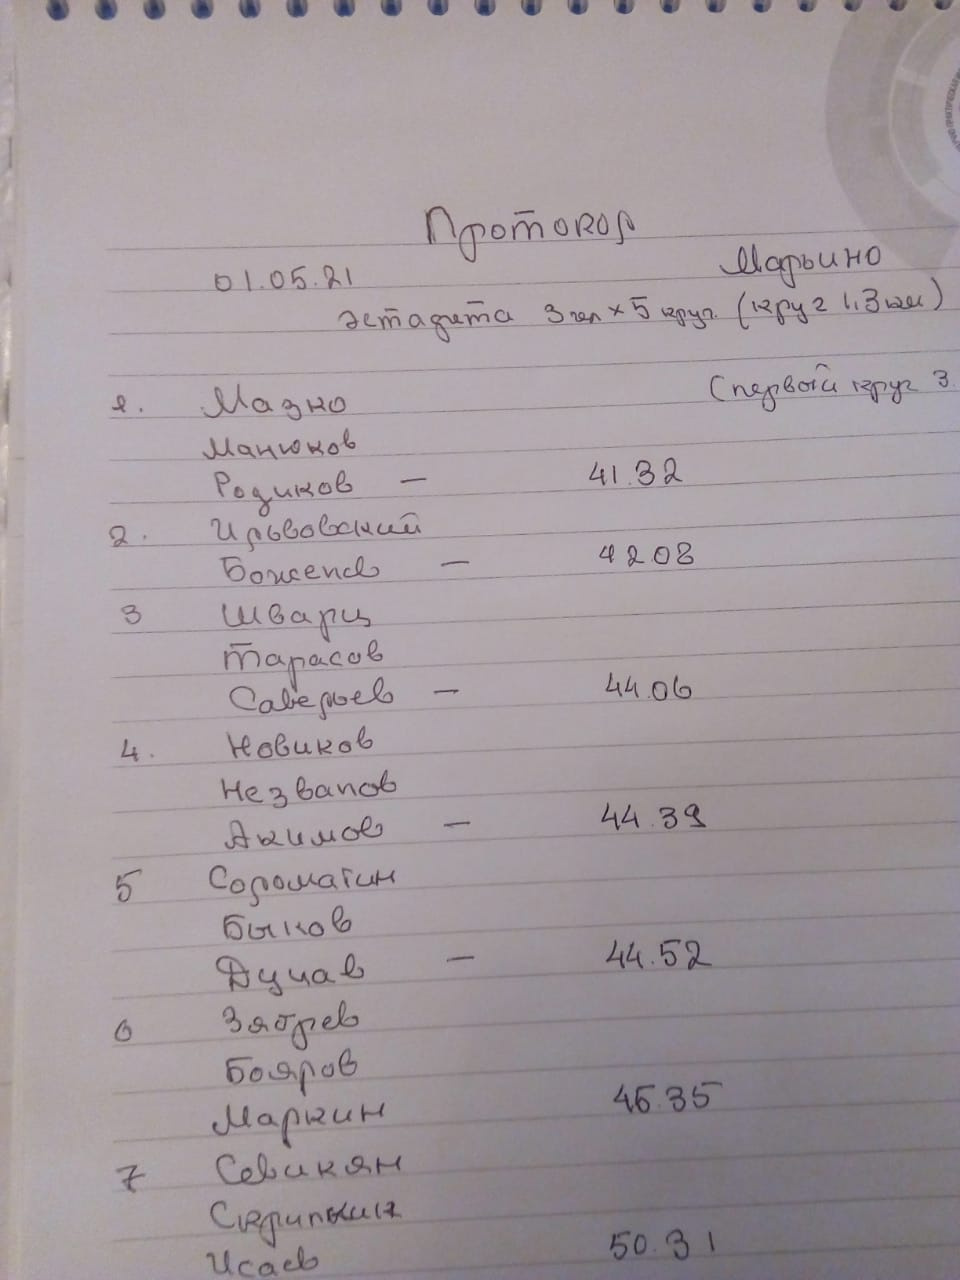 Протокол
01.05.21 Марьино
эстафета 3 чел × 5 круг. (круг 1,3 км)
(первый круг 3.
1. Мазко
Манюков
Родиков — 41.32
2. Ирьвовский
Боженов — 42.08
3 Шварц
Тарасов
Савельев — 44.06
4. Новиков
Незванов
Акимов — 44.39
5 Соломатин
Быков
— 44.52
6 Зябрев
Бояров
Маркин 46.35
7 Севикян
Скрипкин
Исаев 50.31